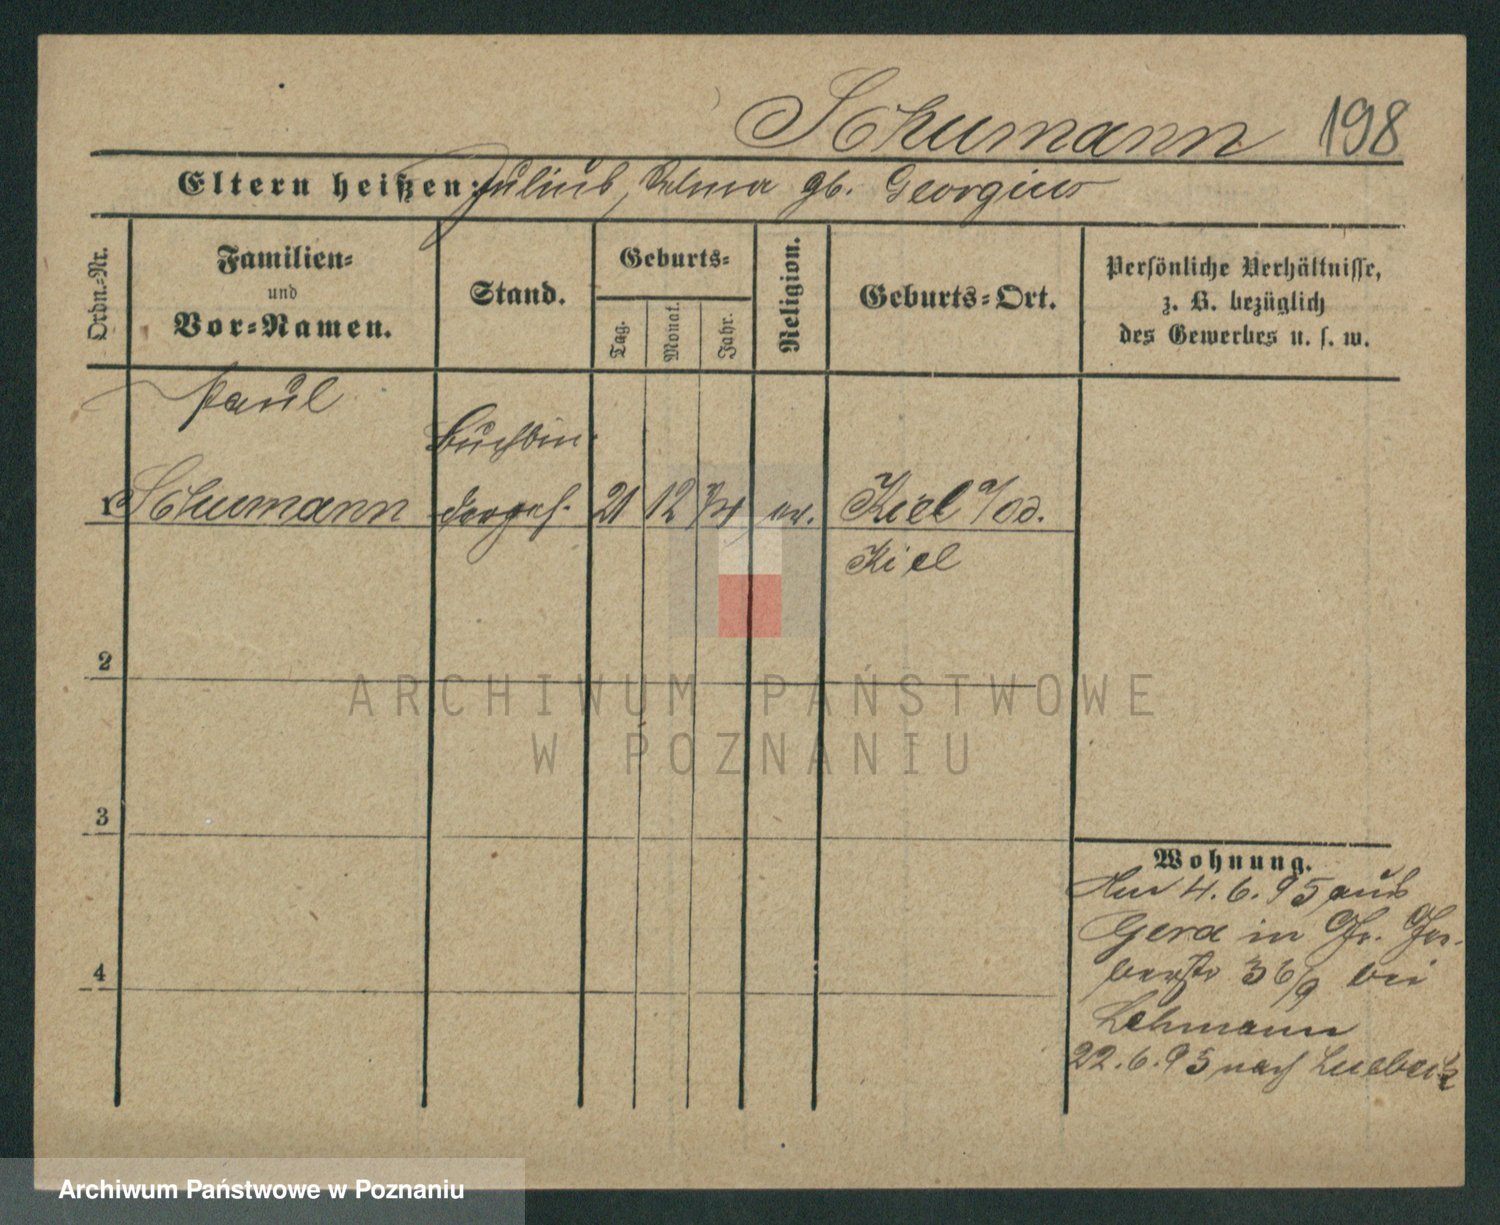 Schumann 198
Eltern heißen: Julius, Selma gb. Georgius
Ordn.=Nr.
Familien=
und
Vor=Namen.
Stand.
Geburts=
Tag.
Monat.
Jahr.
Religion.
Geburts=Ort.
Persönliche Verhältnisse,
z. B. bezüglich
des Gewerbes u. s. w.
Paul
Buchbin-
1 Schumann dergeh. 21 12 74 ev. Kiel a/Od.
Kiel
2
3
4
ARCHIWUM PAŃSTWOWE
W POZNANIU
Wohnung.
4.6.95 aus
Gera in Gr. Ger-
berstr 36/9 bei
Lehmann
22.6.95 nach Luebeck
Archiwum Państwowe w Poznaniu